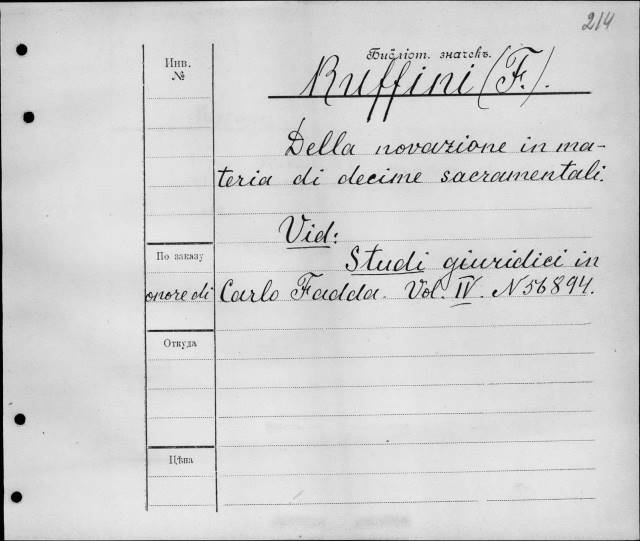 214
Библіот. значекъ.
Инв.
№
Ruffini (F.).
Della novazione in ma-
teria di decime sacramentali.
Vid:
По заказу
Studi giuridici in
onore di Carlo Fadda. Vol. IV. N 56894.
Откуда
Цѣна